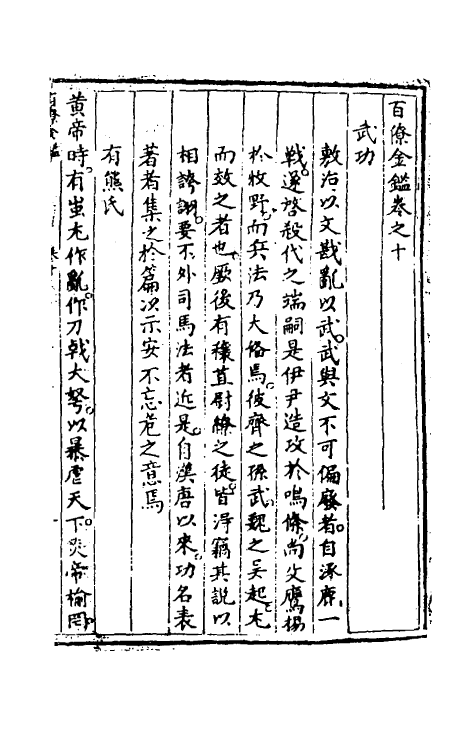 百僚金鑑卷之十
武功
敷治以文戡亂以武武與文不可偏廢者自涿鹿一
戰遂啓殺代之端嗣是伊尹造攻於鳴條尚父鷹揚
於牧野而兵法乃大俻焉彼齊之孫武魏之吳起尤
而效之者也厥後有穰苴尉繚之徒皆得竊其說以
相誇詡要不外司馬法者近是自漢唐以來功名表
著者集之於篇次示安不忘危之意焉
有熊氏
黃帝時有蚩尤作亂作刀戟大弩以暴虐天下炎帝榆罔
百僚金鑑